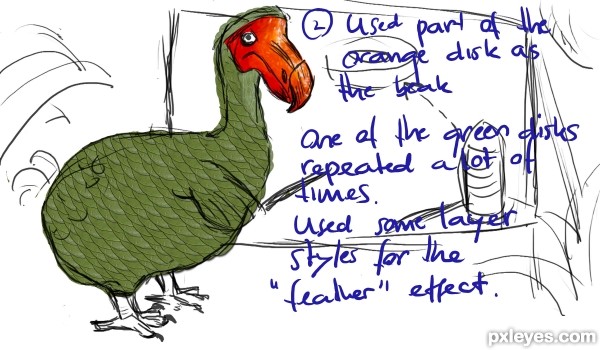 ② Used part of the
orange disk as
the beak
One of the green disks
repeated a lot of
times.
Used some layer
styles for the
"feather" effect.
pxleyes.com